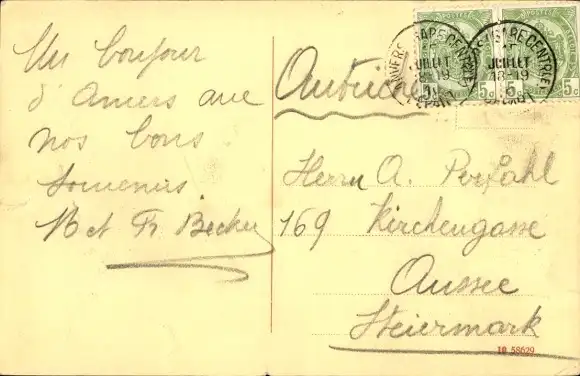 Un bonjour
d'Anvers avec
nos bons
souvenirs.
M et Fr Becker
Autriche
Herrn A. Perfahl
169 Kirchengasse
Aussee
Steiermark
ANVERS (GARE CENTRALE)
JUILLET
18-19
JUILLET
18-19
5c 5 5c
10 58629